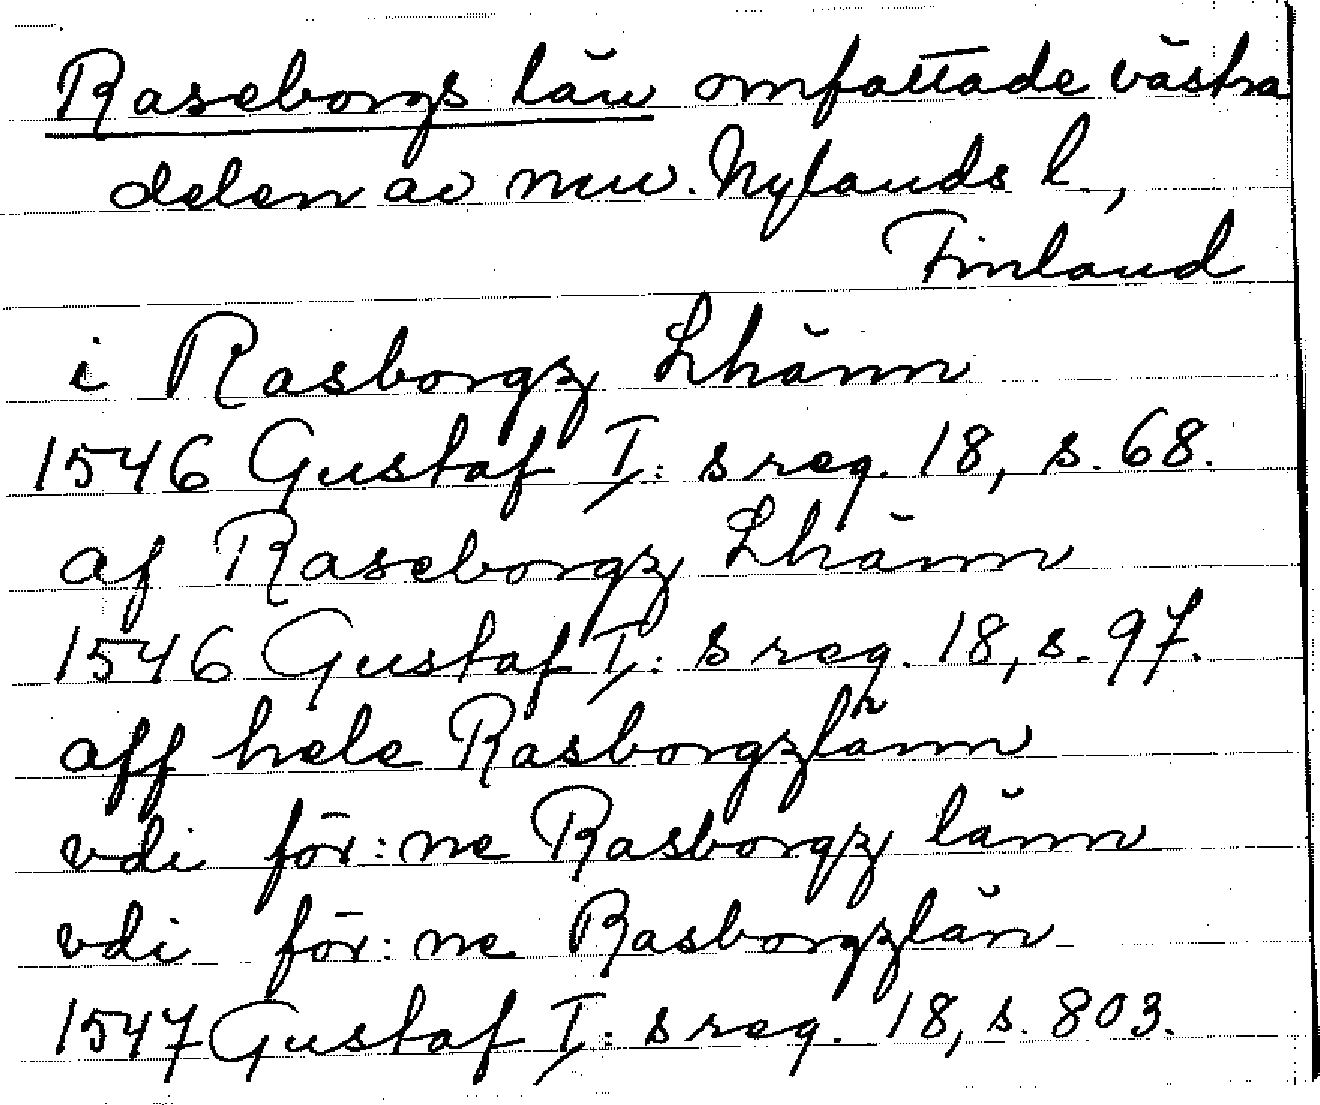 Raseborgs län omfattade västra
delen av nuv. Nylands l.,
Finland
i Rasborgz Lhänn
1546 Gustaf I: s reg. 18, s. 68.
af Raseborgz Lhänn
1546 Gustaf I: s reg. 18, s. 97.
aff hele Rasborgzlhänn
vdi för:ne Rasborgz länn
vdi för:ne Rasborgzlän
1547 Gustaf I: s reg. 18, s. 803.